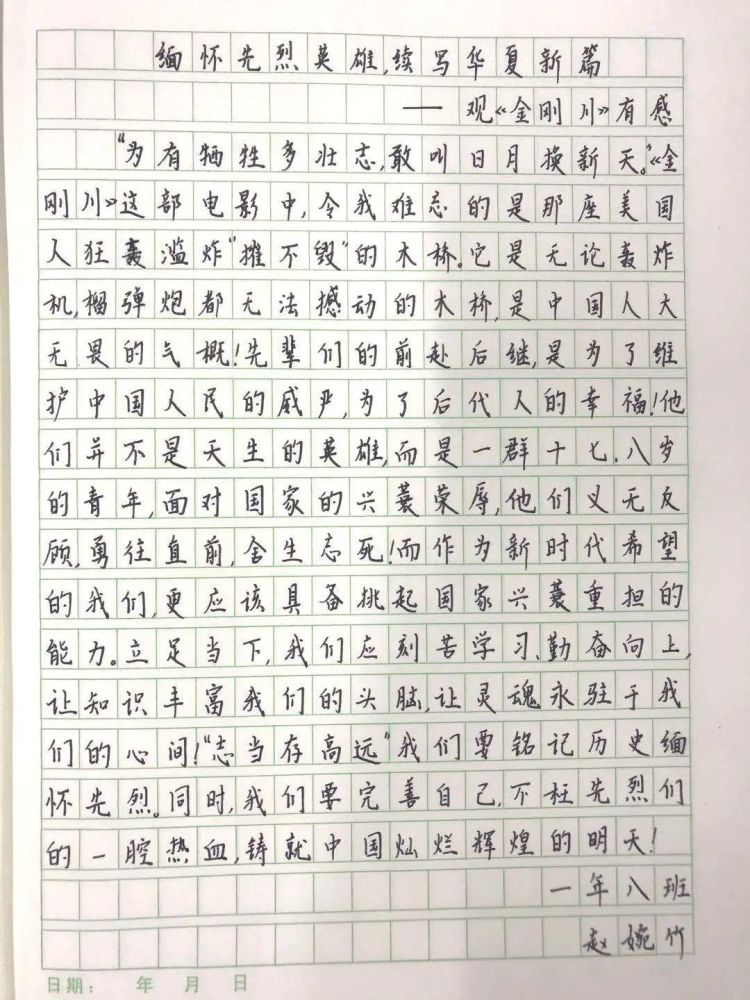 缅怀先烈英雄,续写华夏新篇
——观《金刚川》有感
“为有牺牲多壮志,敢叫日月换新天。”《金
刚川》这部电影中,令我难忘的是那座美国
人狂轰滥炸“摧不毁”的木桥。它是无论轰炸
机,榴弹炮都无法撼动的木桥,是中国人大
无畏的气概!先辈们的前赴后继,是为了维
护中国人民的威严,为了后代人的幸福!他
们并不是天生的英雄,而是一群十七、八岁
的青年,面对国家的兴蓑荣辱,他们义无反
顾,勇往直前,舍生忘死!而作为新时代希望
的我们,更应该具备挑起国家兴蓑重担的
能力。立足当下,我们应刻苦学习、勤奋向上,
让知识丰富我们的头脑,让灵魂永驻于我
们的心间!“志当存高远”我们要铭记历史缅
怀先烈。同时,我们要完善自己,不枉先烈们
的一腔热血,铸就中国灿烂辉煌的明天!
一年八班
赵婉竹
日期: 年 月 日